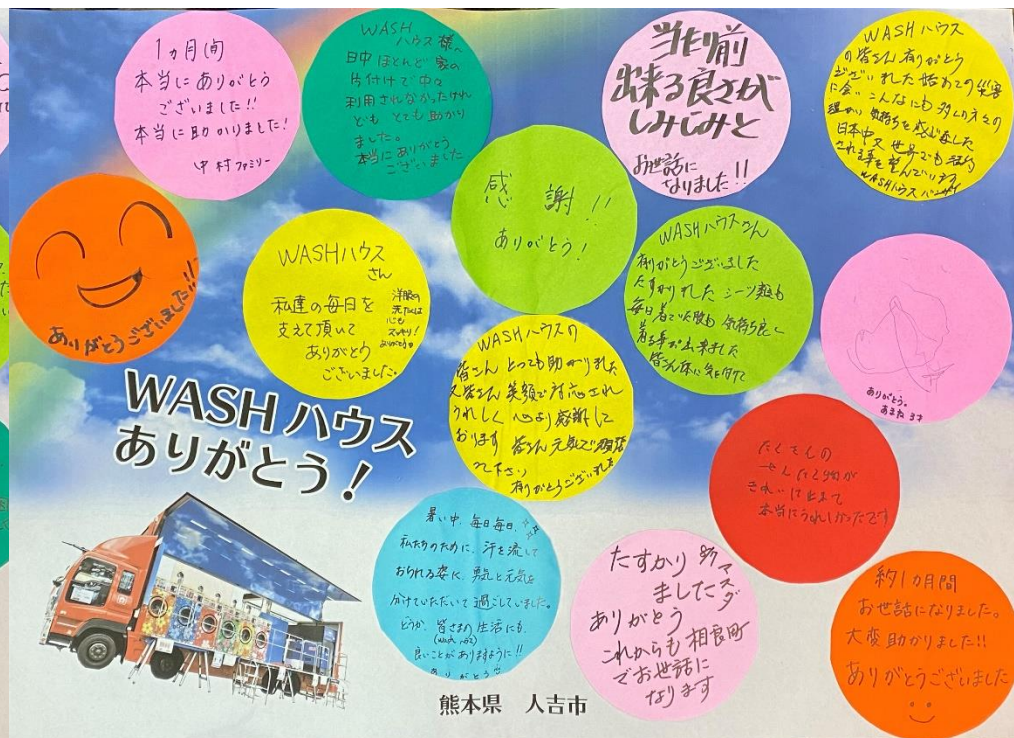 1ヵ月間
本当にありがとう
ございました!!
本当に助かりました!
中村ファミリー
WASH
ハウス様へ
日中ほとんど家の
片付けで中々
利用されなかったけれ
ども とても助かり
ました。
本当にありがとう
ございました
当たり前
出来る良さが
しみじみと
お世話に
なりました!!
WASHハウス
の皆さん有がとう
ございました 始めての災害
に会い こんなにも多くの方々の
温かい気持ちを感じました
日本中又世界でも活躍
される事を望んでいます
WASHハウス バンザイ
ありがとうございました!!
WASHハウス
さん
私達の毎日を
支えて頂いて
ありがとう
ございました。
洋服の
洗たくは
心も
スッキリ!
ありがとう
感謝!!
ありがとう!
WASHハウスさん
有がとうございました
たすかりました シーツ類も
毎日着ていた服も 気持ち良く
着る事が出来ました
皆さん体に気を付けて
ありがとう。
WASHハウスの
皆さん とっても助かりました
又皆さん 笑顔で対応され
うれしく 心より感謝して
おります 皆さん元気で頑張
って下さい
有がとうございました
WASHハウス
ありがとう!
たくさんの
せんたく物が
きれいに出来て
本当にうれしかったです
暑い中、毎日毎日、
私たちのために、汗を流して
おられる姿に、勇気と元気を
分けていただいて過ごしていました。
どうか、皆さまの生活にも、
良いことがありますように!!
ありがとう
たすかり
ました
マスダ
ありがとう
これからも相良町
でお世話に
なります
約1カ月間
お世話になりました。
大変助かりました!!
ありがとうございました
熊本県 人吉市